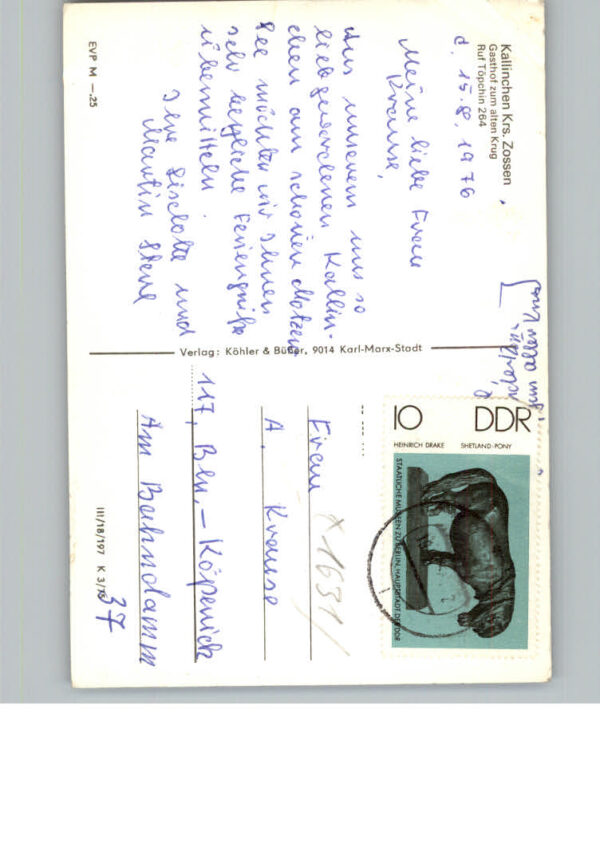 Kallinchen Krs. Zossen
Gasthof zum alten Krug
Ruf Töpchin 264
d. 15.8.1976
Meine liebe Frau
Krause,
Aus unserem uns so
liebgewordenen Kallin-
chen am schönen Motzen
See möchten wir Ihnen
sehr herzliche Feriengrüße
übermitteln.
Ihre Liselotte und
Martin
EVP M –.25
Verlag: Köhler & Büßer, 9014 Karl-Marx-Stadt
10 DDR
HEINRICH DRAKE SHETLAND-PONY
STAATLICHE MUSEEN ZU BERLIN, HAUPTSTADT DER DDR
Frau
A. Krause
117, Bln.-Köpenick
Am Bahndamm
37
III/18/197 K 3/76
x 1631/